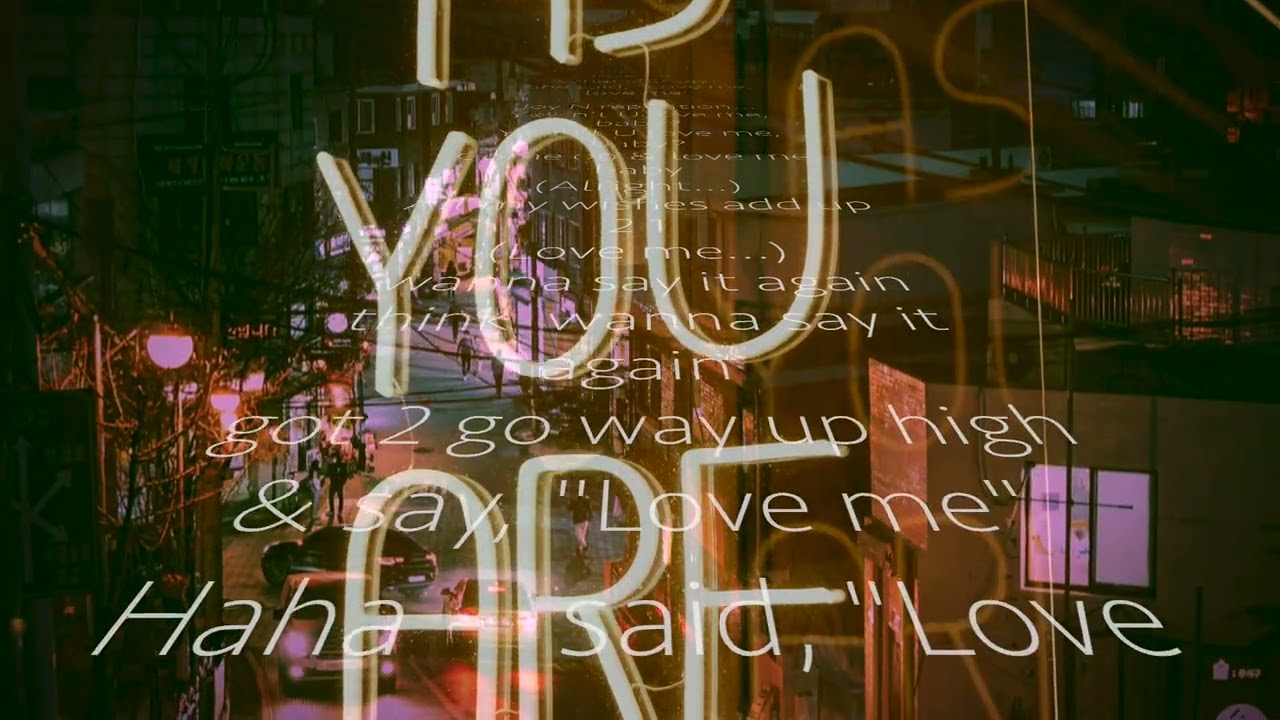 love me
love me,
love me,
& love me
baby
(Alright...)
my wishes add up
2 1
(Love me...)
wanna say it again
think wanna say it
again
got 2 go way up high
& say, "Love me"
Haha - said, "Love
YOU
ARE